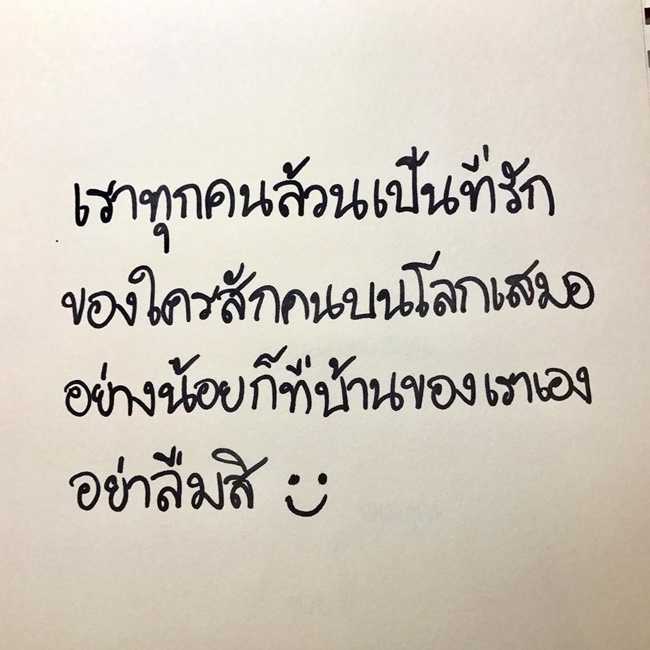 เราทุกคนล้วนเป็นที่รัก
ของใครสักคนบนโลกเสมอ
อย่างน้อยก็ที่บ้านของเราเอง
อย่าลืมสิ